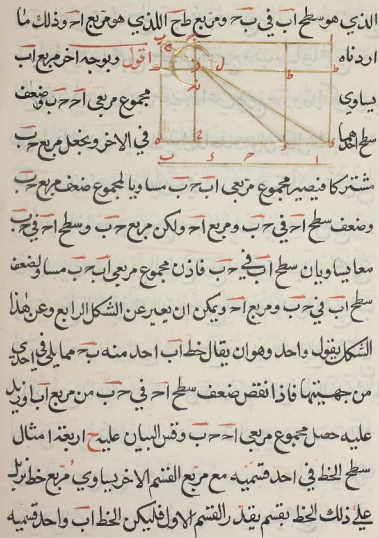 الذي هو سطح اب في ب‍ح ومربع ط‍ح اللذي هو مربع اح وذلك ما
اردناه اقول وبوجه اخر مربع اب
يساوي مجموع مربعي اح ح‍ب وضعف
سطح احدهما في الاخر ونجعل مربع ح‍ب
مشتركا فيصير مجموع مربعي اب ح‍ب مساويا لمجموع ضعف مربع ح‍ب
وضعف سطح اح في ح‍ب ومربع اح ولكن مربع ح‍ب وسطح اح في ح‍ب
معا يساويان سطح اب في ح‍ب فاذن مجموع مربعي اب ح‍ب مساو لضعف
سطح اب في ح‍ب ومربع اح ويمكن ان يعبر عن الشكل الرابع وعن هذا
الشكل بقول واحد وهو ان يقال خط اب احد منه ب‍ح مما يلي في احدي
من جهتيها فاذا نقص ضعف سطح اح في ح‍ب من مربع اب او زيد
عليه حصل مجموع مربعي اح ح‍ب وقس البيان عليه ح اربعة امثال
سطح الخط في احد قسميه مع مربع القسم الاخر يساوي مربع خط يزيد
علي ذلك الخط بقسم بقدر القسم الاول فليكن الخط اب واحد قسميه